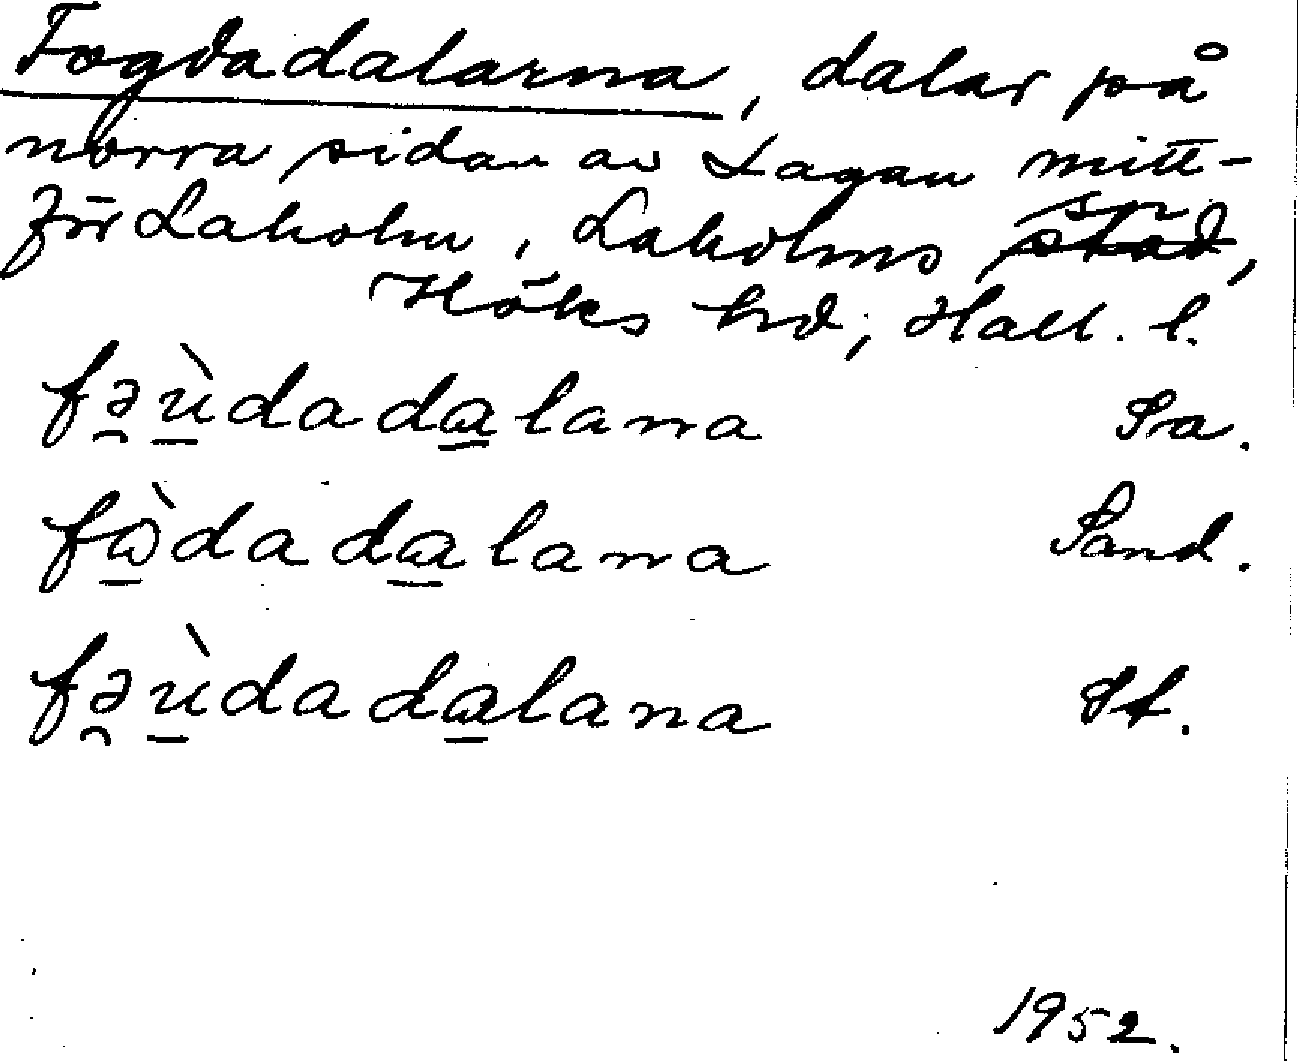 Fogdadalarna, dalar på
norra sidan av Lagan mitt-
för Laholm, Laholms sn,
Höks hd, Hall. l.
fə̯ùdadalana Pa.
fὼdadalana Sand.
fə̯ùdadalana
1952.